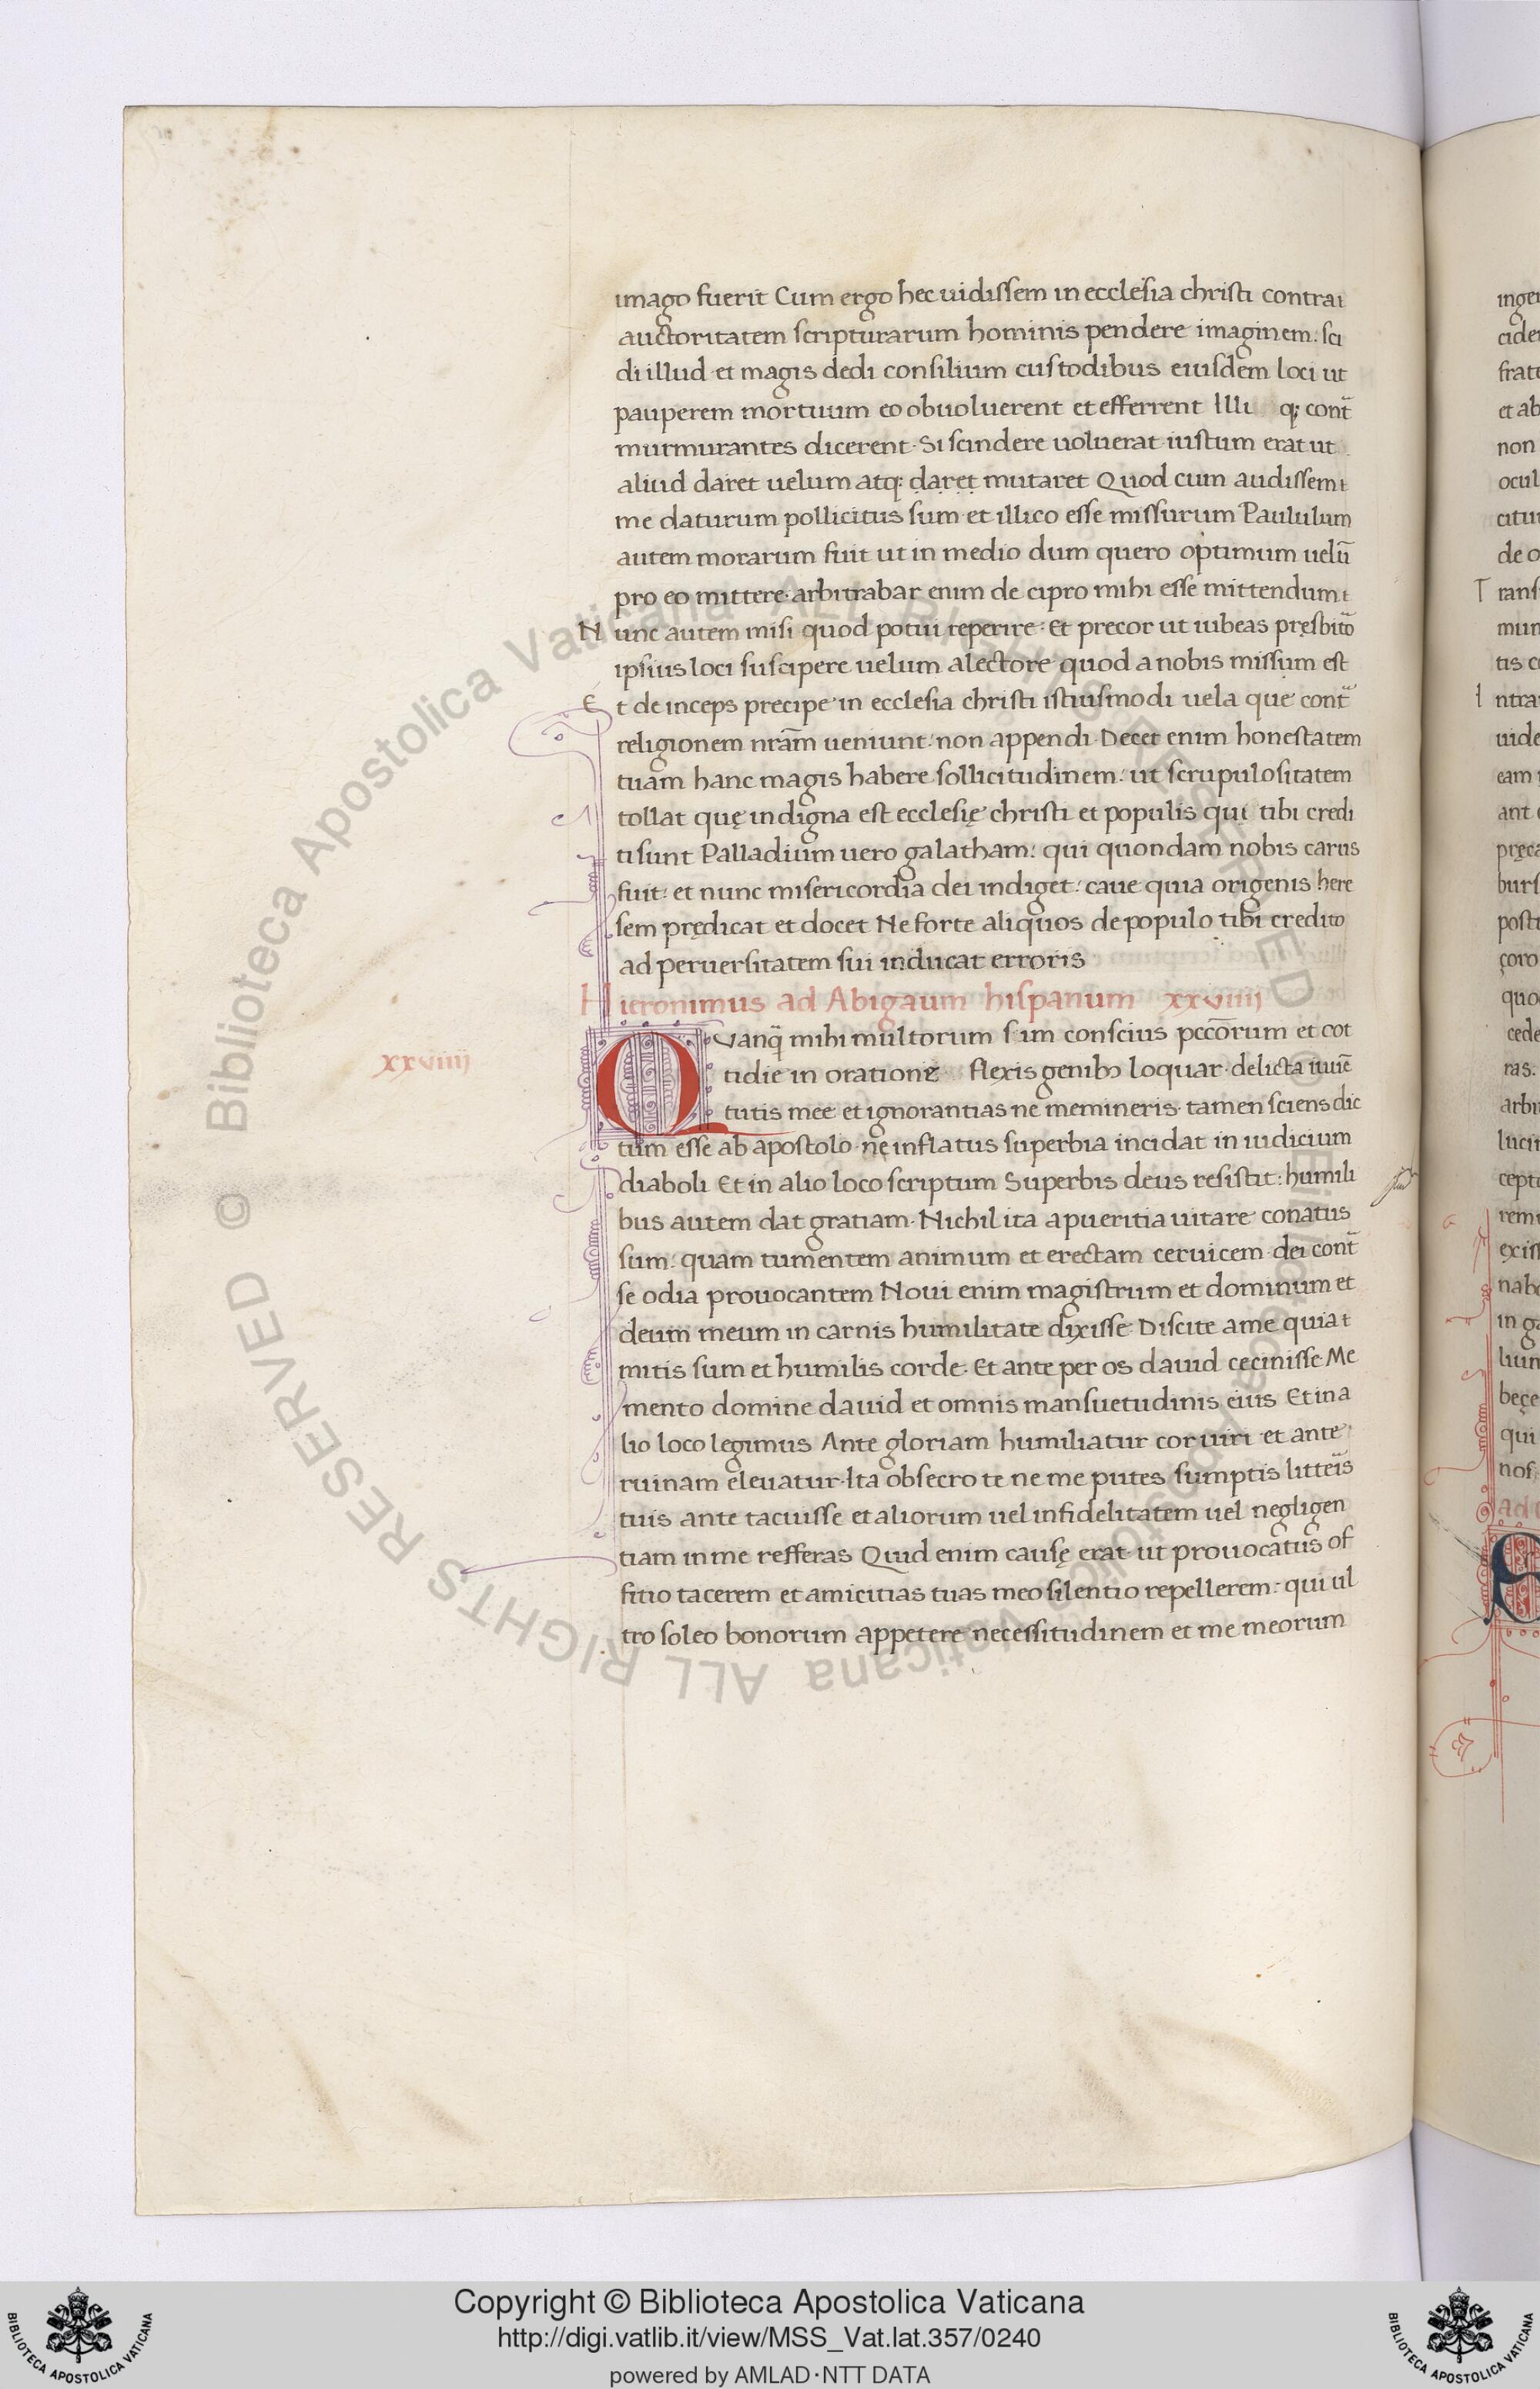 imago fuerit Cum ergo hec uidissem in ecclesia christi contrai
auctoritatem scripturarum hominis pendere imaginem: sci
di illud et magis dedi consilium custodibus eiusdem loci ut
pauperem mortuum eo obuoluerent et efferrent Illi q; cont̄
murmurantes dicerent· Si scindere uoluerat iustum erat ut
aliud daret uelum atq: daret mutaret Quod cum audissem
me daturum pollicitus sum et illico esse missurum Paululum
autem morarum fuit ut in medio dum quero optimum uelū
pro eo mittere· arbitrabar enim de cipro mihi esse mittendum
Nunc autem misi quod potui reperire: Et precor ut iubeas pręsbito
ipsius loci suscipere uelum alectore quod a nobis missum est
Et deinceps precipe in ecclesia christi istiusmodi uela que cont̄
religionem nrām ueniunt: non appendi Decet enim honestatem
tuam hanc magis habere sollicitudinem: ut scrupulositatem
tollat quę indigna est ecclesię christi et populis qui tibi credi
ti sunt Palladium uero galatham: qui quondam nobis carus
fuit: et nunc misericordia dei indiget: caue quia origenis here
sem prędicat et docet Ne forte aliquos de populo tibi credito
ad peruersitatem sui inducat erroris
Hieronimus ad Abigaum hispanum xxviiii
xxviiii
Quanq̄ mihi multorum sim conscius pccōrum et cot
tidie in oratione flexis genibus loquar· delicta iuuē
tutis mee et ignorantias ne memineris· tamen sciens dic
tum esse ab apostolo· ne inflatus superbia incidat in iudicium
diaboli Et in alio loco scriptum Superbis deus resistit: humili
bus autem dat gratiam· Nichil ita a pueritia uitare conatus
sum: quam tumentem animum et erectam ceruicem dei cont̄
se odia prouocantem Noui enim magistrum et dominum et
deum meum in carnis humilitate dixisse· Discite a me quia
mitis sum et humilis corde· Et ante per os dauid cecinisse Me
mento domine dauid et omnis mansuetudinis eius Et in a
lio loco legimus Ante gloriam humiliatur cor uiri et ante
ruinam eleuatur· Ita obsecro te ne me putes sumptis litteis
tuis ante tacuisse et aliorum uel infidelitatem uel negligen
tiam in me refferas Quid enim causę erat ut prouocatus of
fitio tacerem et amicitias tuas meo silentio repellerem: qui ul
tro soleo bonorum appetere necessitudinem et me meorum
Copyright © Biblioteca Apostolica Vaticana
http://digi.vatlib.it/view/MSS_Vat.lat.357/0240
powered by AMLAD·NTT DATA